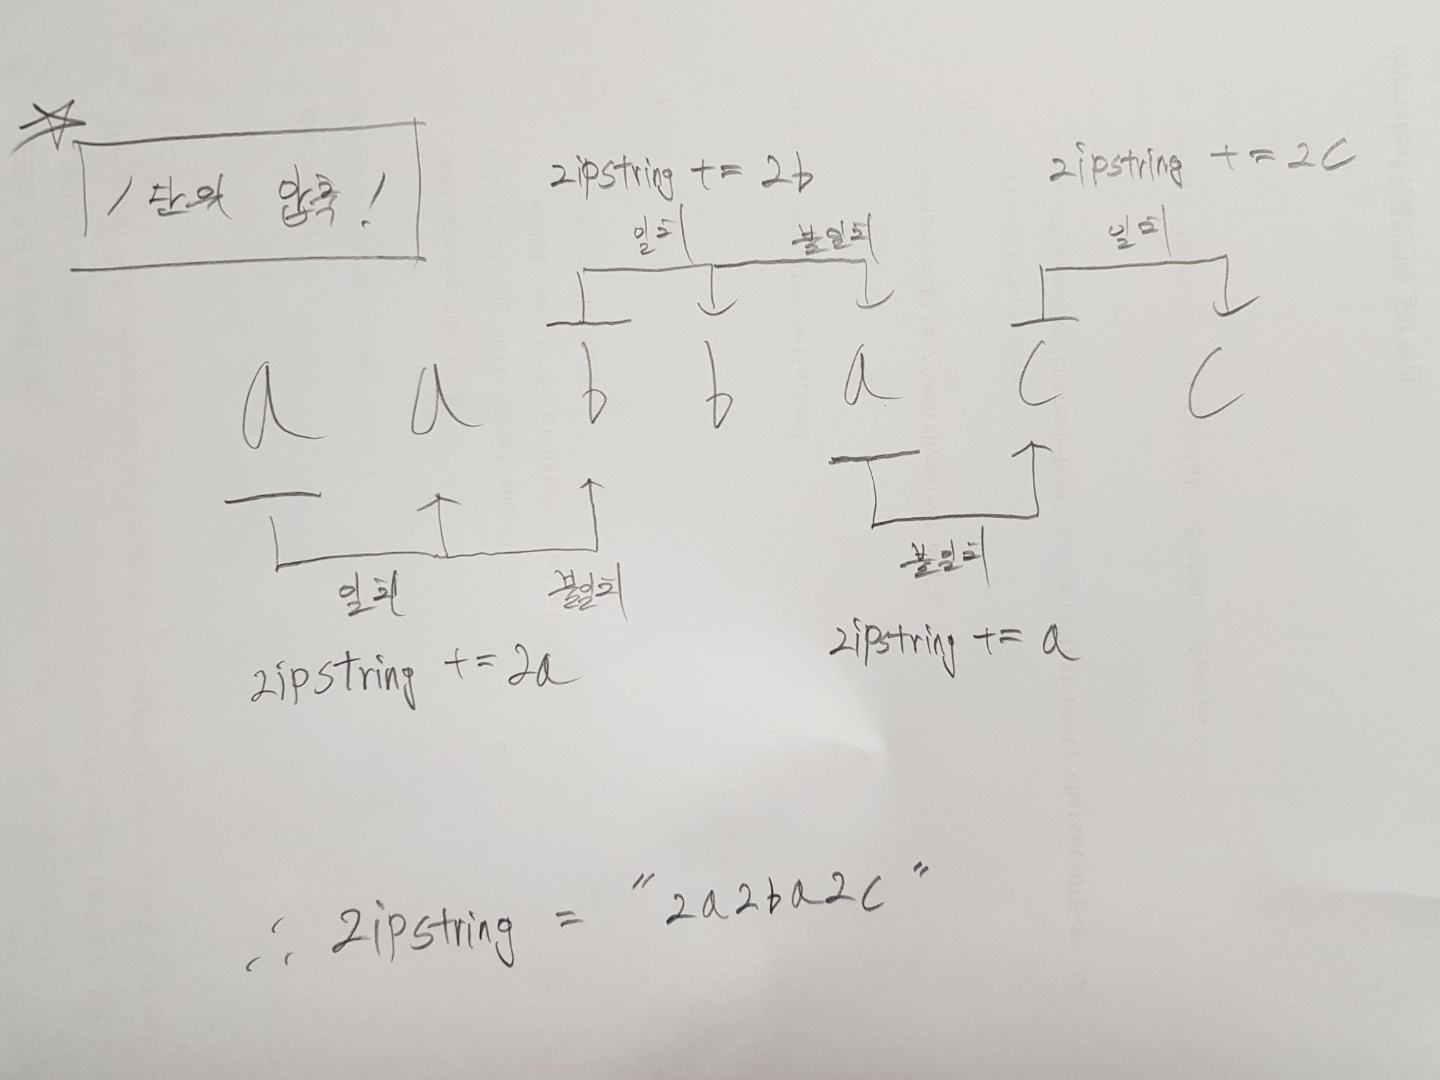 1단위 압축!
zipstring += 2b
zipstring += 2c
일치
불일치
일치
a a b b a c c
일치
불일치
불일치
zipstring += 2a
zipstring += a
∴ zipstring = "2a2ba2c"